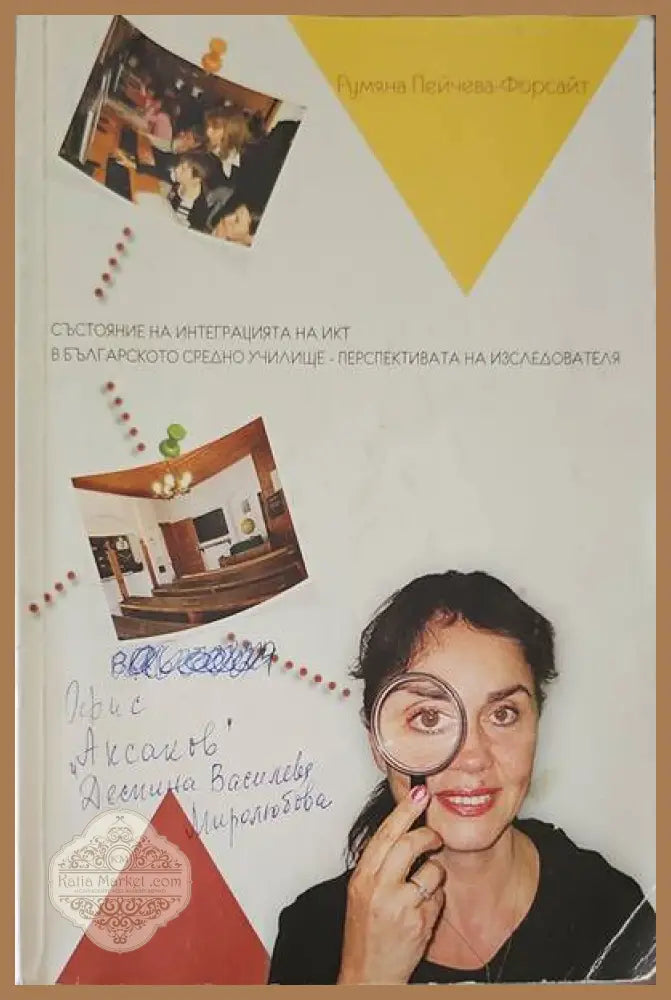 Румяна Пейчева-Форсайт
СЪСТОЯНИЕ НА ИНТЕГРАЦИЯТА НА ИКТ
В БЪЛГАРСКОТО СРЕДНО УЧИЛИЩЕ - ПЕРСПЕКТИВАТА НА ИЗСЛЕДОВАТЕЛЯ
Офис
„Аксаков"
Деспина Василева
Миролюбова
KM
Katia Market .com